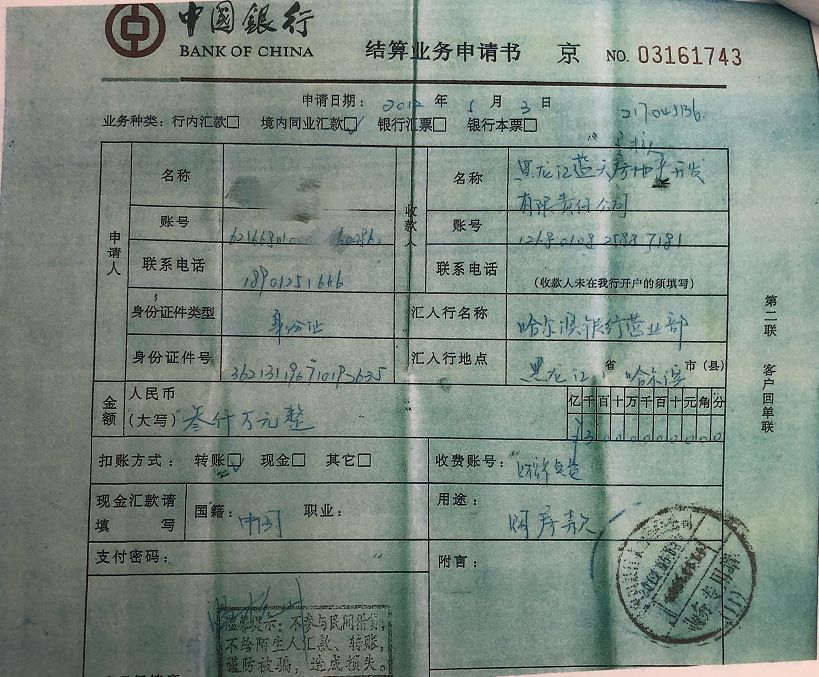 中國銀行
BANK OF CHINA
结算业务申请书 京 NO. 03161743
申请日期： 2012 年 5 月 3 日
217045136
业务种类：行内汇款□ 境内同业汇款☑ 银行汇票□ 银行本票□
申请人
名称
账号
联系电话 18901251666
身份证件类型 身份证
身份证件号
收款人
名称 黑龙江蓝天房地产开发
有限责任公司
账号 1268 0108 2588 7181
联系电话
(收款人未在我行开户的须填写)
汇入行名称 哈尔滨银行营业部
汇入行地点 黑龙江 省 哈尔滨 市(县)
金额
人民币
(大写) 叁仟万元整
亿千百十万千百十元角分
扣账方式： 转账☑ 现金□ 其它□
收费账号：
现金汇款请填写
国籍：中国 职业：
用途： 购房款
支付密码：
附言：
温馨提示：不参与民间借贷，
不给陌生人汇款、转账，
谨防被骗，造成损失。
业务专用章
第二联 客户回单联